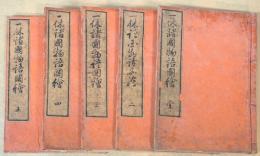 一休諸國物語圖繪 壹
一休諸國物語圖繪 二
一休諸國物語圖繪 三
一休諸國物語圖繪 四
一休諸國物語圖繪 五